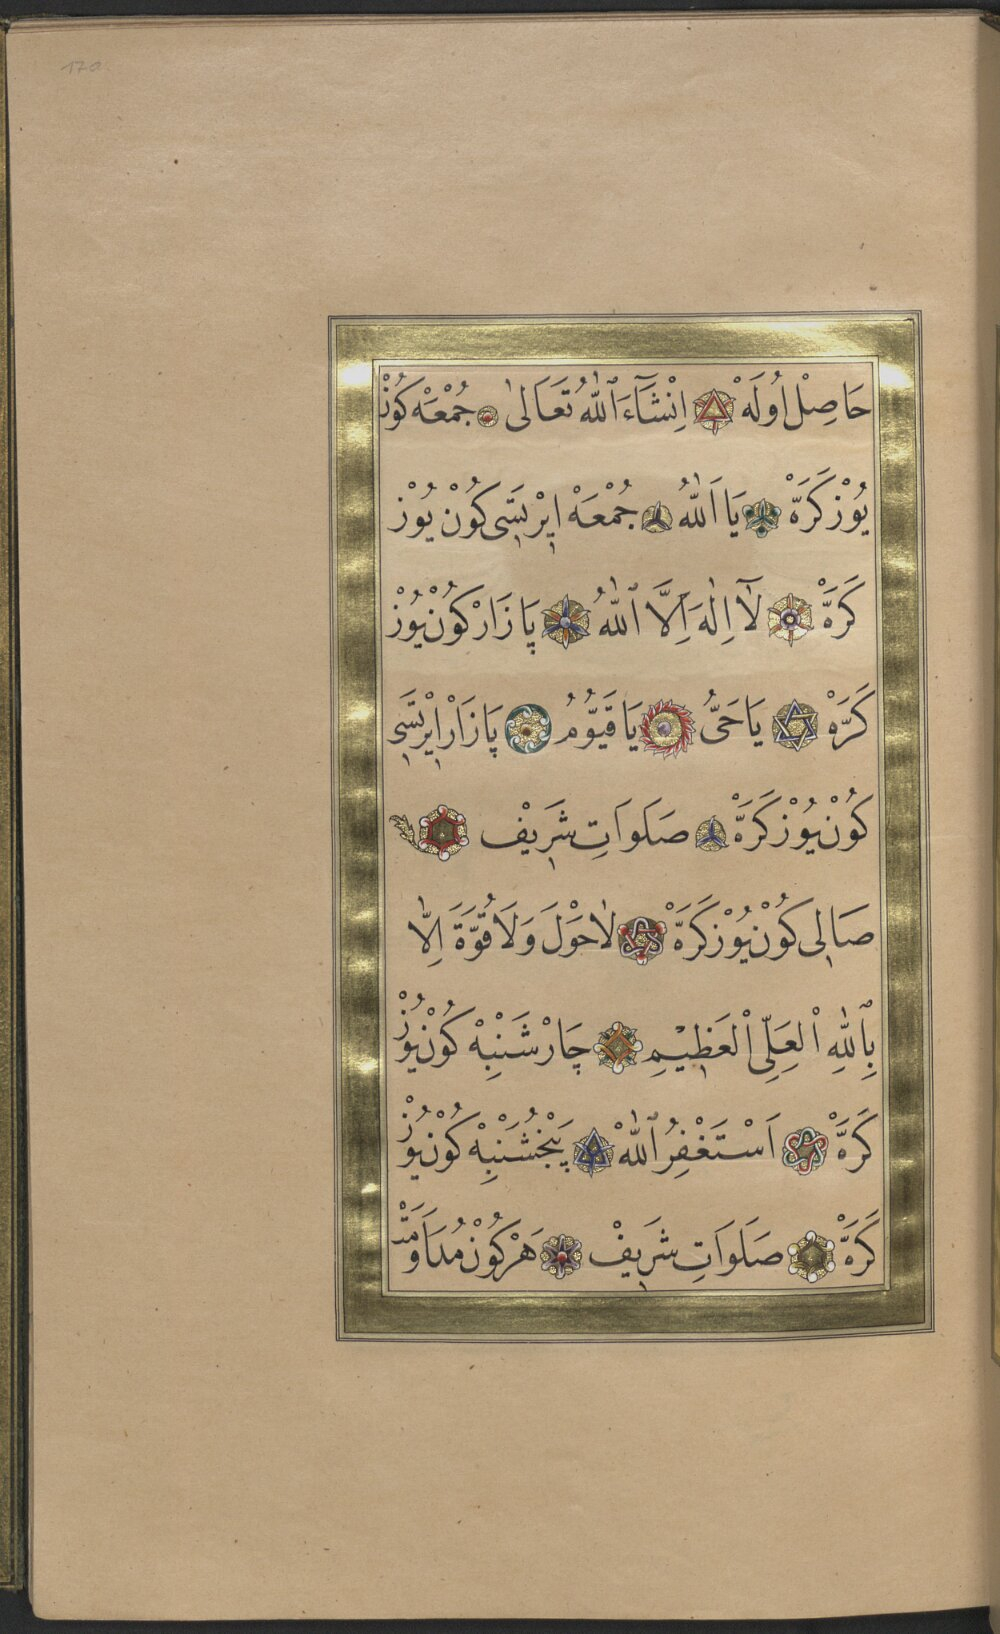 17a
حَاصِلْ اُولَهْ اِنْشَآءَ ٱللّٰهُ تَعَالٰى جُمْعَهْ كُونْ
يُوْزْ كَرَّهْ يَا اَللّٰهُ جُمْعَهْ اِيرْتَسِى كُونْ يُوْزْ
كَرَّهْ لَآ اِلٰهَ اِلَّا ٱللّٰهُ پَازَارْ كُونْ يُوْزْ
كَرَّهْ يَا حَىُّ يَا قَيُّومُ پَازَارْ اِيرْتَسِى
كُونْ يُوْزْ كَرَّهْ صَلَوَاتِ شَرِيفْ
صَالِى كُونْ يُوْزْ كَرَّهْ لَا حَوْلَ وَلَا قُوَّةَ اِلَّا
بِاللّٰهِ ٱلْعَلِىِّ ٱلْعَظِيْمِ چَارْشَنْبِهْ كُونْ يُوْزْ
كَرَّهْ اَسْتَغْفِرُ ٱللّٰهْ پَنْجُشَنْبِهْ كُونْ يُوْزْ
كَرَّهْ صَلَوَاتِ شَرِيفْ هَرْ كُونْ مُدَاوَمَتْ